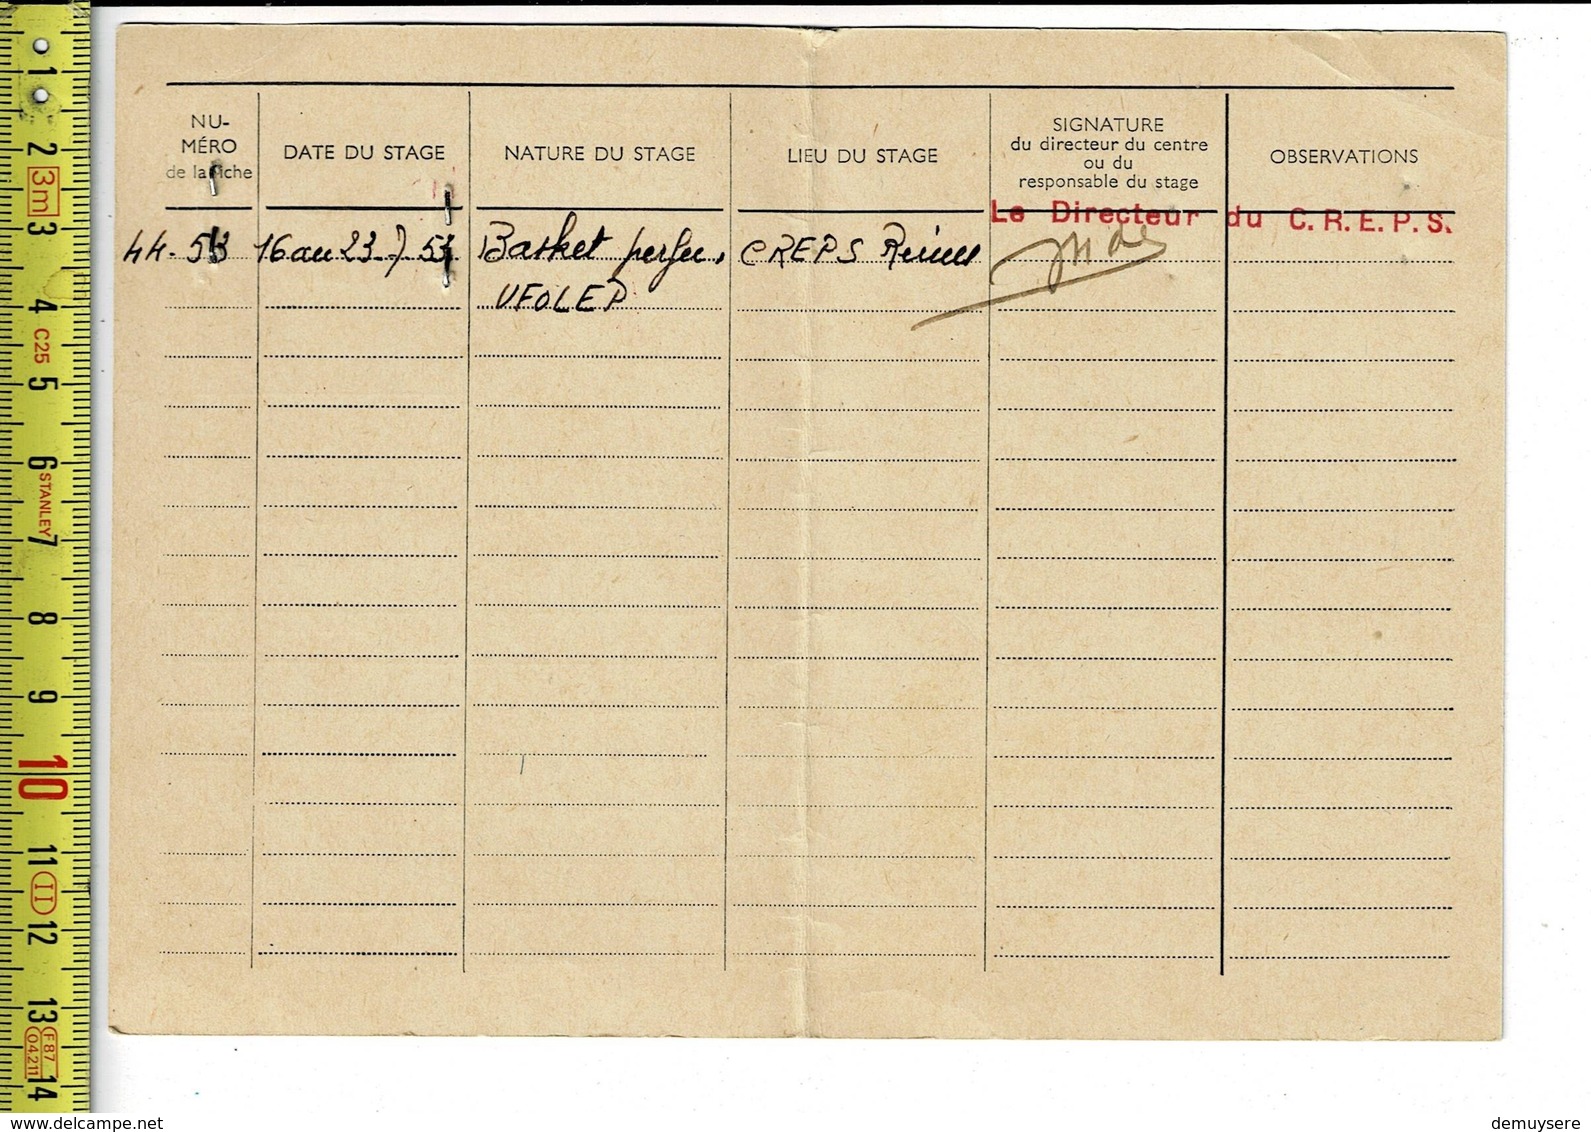 NU-
MÉRO
de la fiche
DATE DU STAGE
NATURE DU STAGE
LIEU DU STAGE
SIGNATURE
du directeur du centre
ou du
responsable du stage
OBSERVATIONS
Le Directeur du C.R.E.P.S.
44-53 16 au 23-7 53 Basket perfec. CREPS Reims
UFOLEP
1
2
3m
3
4
C25
5
6
STANLEY
7
8
9
10
11
II
12
13
F87
04.211
14
demuysere